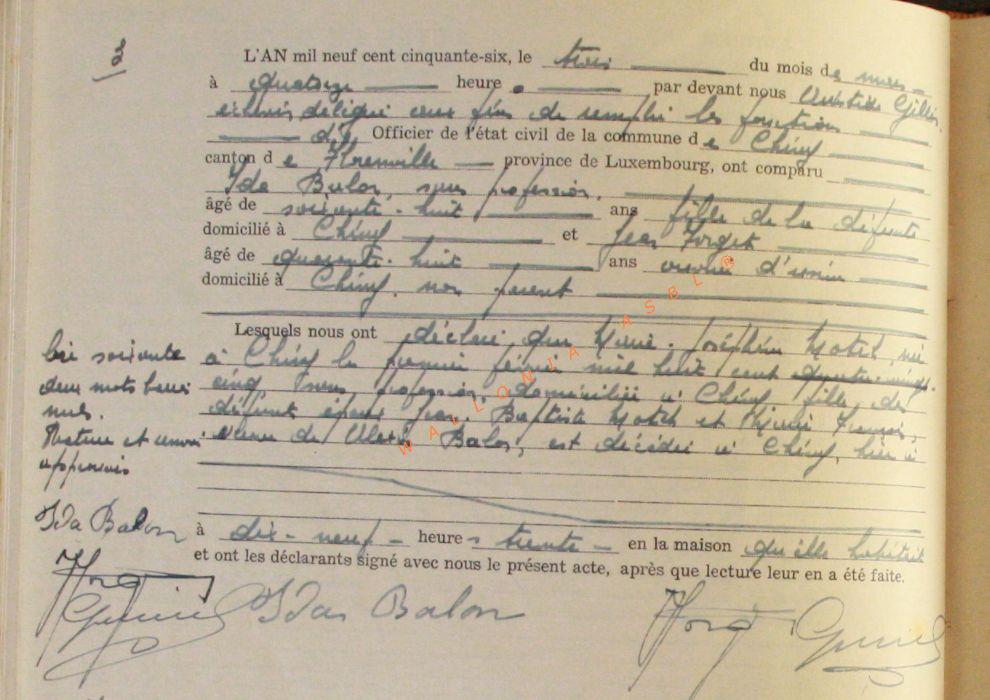 3
L'AN mil neuf cent cinquante-six, le trois du mois de mars
à quatorze heure par devant nous Aristide Gillis,
échevin délégué aux fins de remplir les fonctions
d' Officier de l'état civil de la commune de Chiny
canton de Florenville province de Luxembourg, ont comparu
Ida Balon, sans profession,
âgé de soixante-huit ans fille de la défunte
domicilié à Chiny et Jean Forget
âgé de quarante-huit ans ouvrier d'usine
domicilié à Chiny, non parent
Lesquels nous ont déclaré que Marie-Joséphine née
à Chiny le premier février mil huit cent quatre-vingt-
cinq sans profession, domiciliée à Chiny, fille de
défunts époux Jean Baptiste et Marie
veuve de Balon, est décédée à Chiny, hier à
lire soixante
deux mots
nuls.
Rature et renvoi
approuvés
Ida Balon
à dix-neuf heures trente en la maison qu'elle habitait
et ont les déclarants signé avec nous le présent acte, après que lecture leur en a été faite.
Ida Balon
WALLONIA ASBL ®